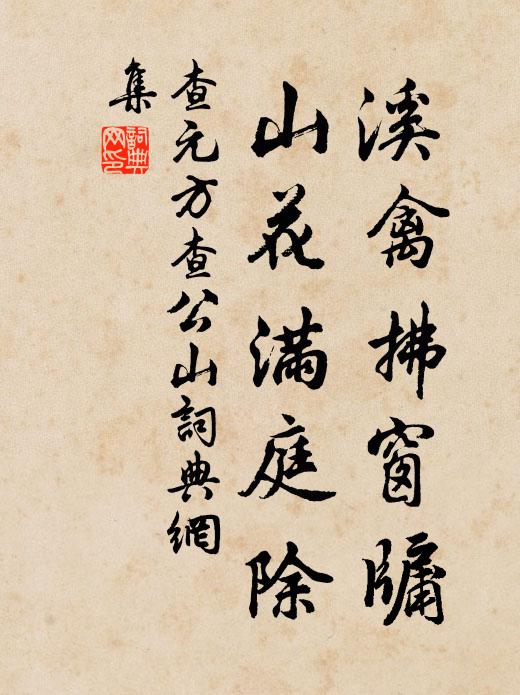 溪禽拂窗牖
山花满庭除
查元方查公山詞典網
集
詞典
网印